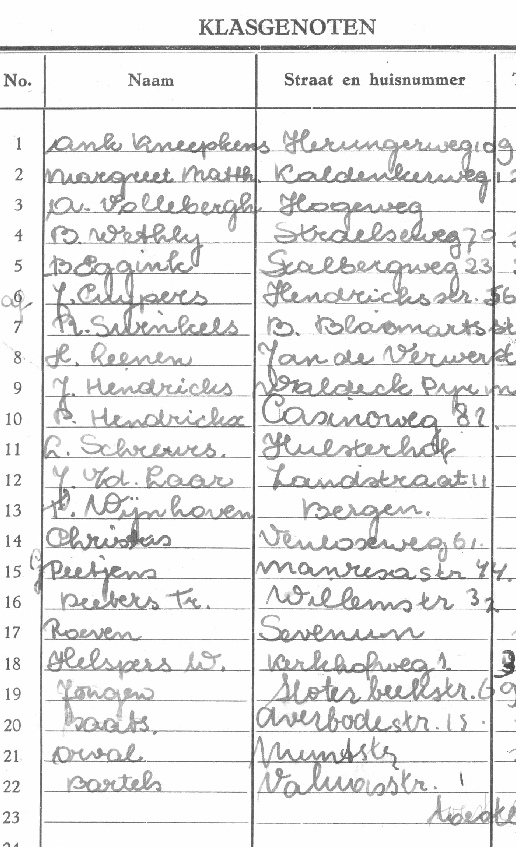 KLASGENOTEN
No. Naam Straat en huisnummer
1 Ank Kneepkens Herungerweg 109
2 Margriet Matth. Kaldenkerweg
3 A. Vollebergh Hogeweg
4 B. Wethly Straelseweg 79
5 B Eggink Stalbergweg 23
6 J. Cuypers Hendricksstr. 56
7 R. Swinkels B. Blaomartsst
8 H. Leenen Jan de Verwerst
9 J. Hendricks Waldeck Pyrm
10 P. Hendrickx Casinoweg 82.
11 L. Schreurs. Hulsterhof
12 J. v.d. Laar Landstraat 11
13 P. Wijnhoven Bergen.
14 Christus Venloseweg 61.
15 Peetjens Manresastr 44.
16 Peebers Tr. Willemstr 32
17 Roeven Sevenum
18 Helspers W. Kerkhofweg 1.
19 Jongen Sloterbeekstr. 69
20 Averbodestr. 15.
21 Orval Muntstr
22 Bartels Valuasstr. 1
23